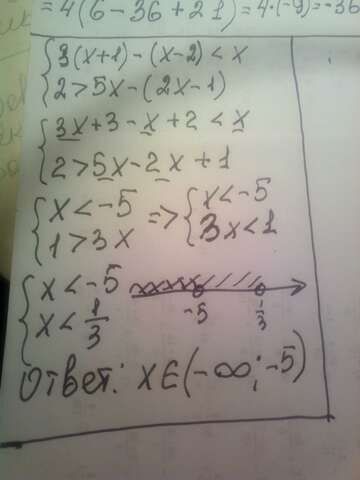 =4(6-36+21)=4·(-9)=-36
{3(x+1)-(x-2)<x
{2>5x-(2x-1)
{3x+3-x+2<x
{2>5x-2x+1
{x<-5 => {x<-5
{1>3x {3x<1
{x<-5
{x<1/3
-5 1/3
Ответ: x∈(-∞;-5)